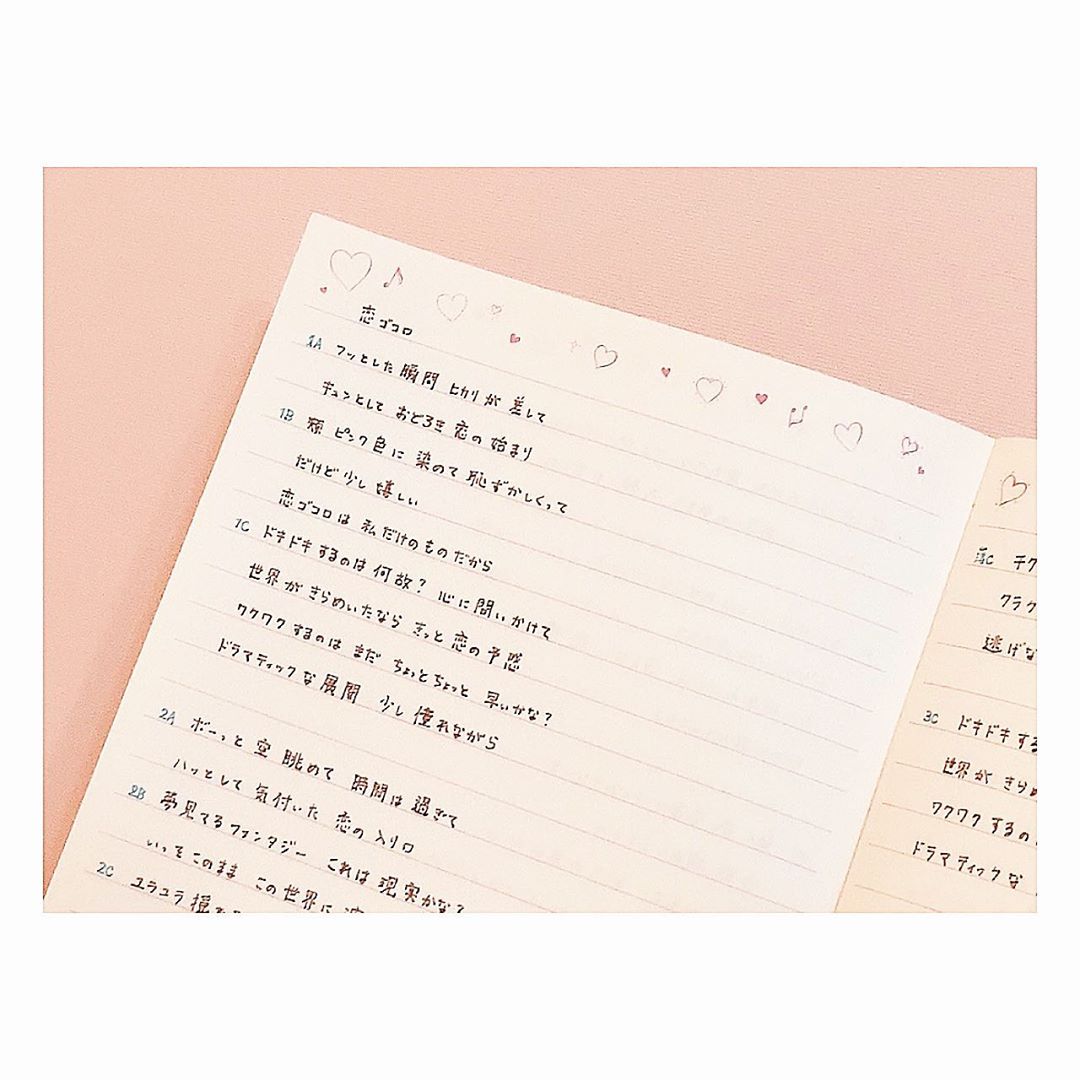 恋ゴコロ
1A フッとした瞬間 ヒカリが差して
キュンとして おどろき 恋の始まり
1B 頬 ピンク色に 染めて 恥ずかしくって
だけど少し嬉しい
恋ゴコロは 私だけのものだから
1C ドキドキするのは何故? 心に問いかけて
世界がきらめいたなら きっと恋の予感
ワクワクするのは まだ ちょっとちょっと 早いかな?
ドラマティックな展開 少し憧れながら
2A ボーっと空眺めて 時間は過ぎて
ハッとして気付いた 恋の入り口
2B 夢見てるファンタジー これは現実かな?
いっそこのまま この世界に
2C ユラユラ
落C チク
クラク
逃げな
3C ドキドキする
世界が きらめ
ワクワクするの
ドラマティックな